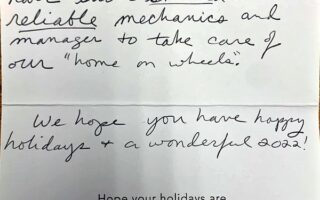 reliable mechanics and
manager to take care of
our "home on wheels".
We hope you have happy
holidays + a wonderful 2022!
Hope your holidays are